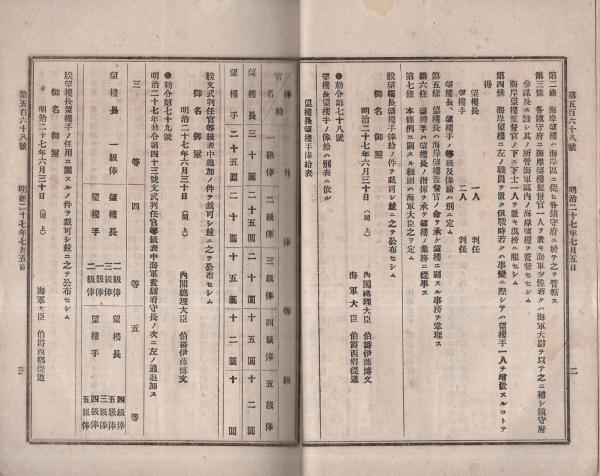 第五百六十八號 明治二十七年七月五日 二
第二條 海岸望樓ハ海岸區ニ從ヒ各鎭守府ニ於テ之ヲ管轄ス
第三條 各鎭守府ニ海岸望樓監督官一人ヲ置キ海軍少佐若クハ海軍大尉ヲ以テ之ニ補シ鎭守府
參謀長ニ隷シ其ノ所管海軍區内ノ海岸望樓ヲ監督セシム
海岸望樓監督官ノ下ニ下士一人ヲ置キ庶務ニ服セシム
第四條 海岸望樓ニ左ノ職員ヲ置ク但戰時若クハ事變ニ際シテハ望樓手一人ヲ增置スルコトヲ
得
望樓長 一人 判任
望樓手 二人 判任
望樓長、望樓手ノ等級及俸給ハ別ニ定ム
第五條 望樓長ハ海岸望樓監督官ノ命ヲ承ケ望樓ニ關スル事務ヲ掌理ス
第六條 望樓手ハ望樓長ノ指揮ヲ承ケ望樓ノ業務ニ從事ス
第七條 本條例ニ關スル細則ハ海軍大臣之ヲ定ム
朕望樓長望樓手俸給ノ件ヲ裁可シ玆ニ之ヲ公布セシム
御名 御璽
明治二十七年六月三十日
內閣總理大臣 伯爵伊藤博文
海軍大臣 伯爵西鄕從道
●勅令第七十八號
望樓長望樓手ノ俸給ハ別表ニ依ル
望樓長望樓手俸給表
俸給 月俸 等級
官名 一級俸 二級俸 三級俸 四級俸 五級俸
望樓長 三十圓 二十五圓 二十圓 十五圓 十二圓
望樓手 二十五圓 二十圓 十五圓 十二圓 十圓
朕文武判任官等級表中追加ノ件ヲ裁可シ玆ニ之ヲ公布セシム
御名 御璽
明治二十七年六月三十日
內閣總理大臣 伯爵伊藤博文
●勅令第七十九號
明治二十七年勅令第四十三號文武判任官等級表中海軍監獄看守長ノ次ニ左ノ通追加ス
三等 四等 五等
望樓長 一級俸 望樓長 二級俸 三級俸 望樓長 四級俸 五級俸
望樓手 一級俸 二級俸 望樓手 三級俸 四級俸 五級俸
朕望樓長望樓手ノ任用ニ關スルノ件ヲ裁可シ玆ニ之ヲ公布セシム
御名 御璽
明治二十七年六月三十日
海軍大臣 伯爵西鄕從道
第五百六十八號 明治二十七年七月五日 三